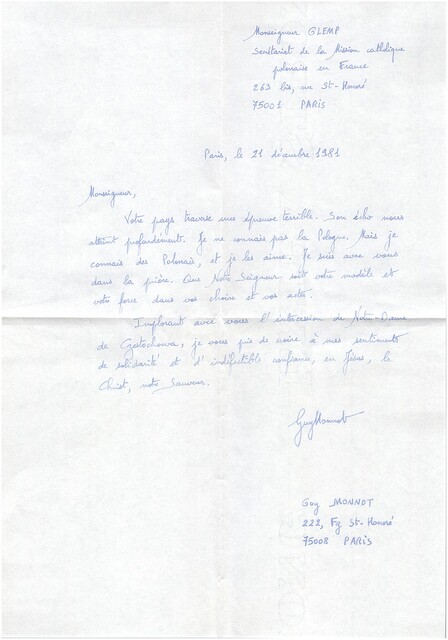 Monseigneur GLEMP
Secrétariat de la Mission catholique
polonaise en France
263 bis, rue St-Honoré
75001 PARIS
Paris, le 21 décembre 1981
Monseigneur,
Votre pays traverse une épreuve terrible. Son écho nous
atteint profondément. Je ne connais pas la Pologne. Mais je
connais des Polonais, et je les aime. Je suis avec vous
dans la prière. Que Notre Seigneur soit votre modèle et
votre force dans vos choix et vos actes.
Implorant avec vous l'intercession de Notre-Dame
de Czestochowa, je vous prie de croire à mes sentiments
de solidarité et d'indéfectible confiance, en Jésus, le
Christ, notre Sauveur.
Guy Monnot
Guy MONNOT
222, Fg St-Honoré
75008 PARIS